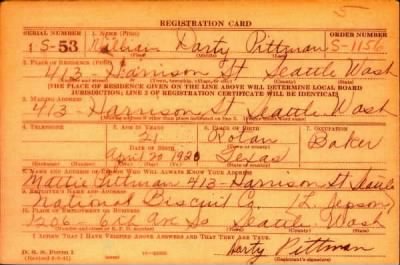 REGISTRATION CARD
SERIAL NUMBER 1. NAME (Print) ORDER NUMBER
1 S-53 William Darty Pittman S-1156
(First) (Middle) (Last)
2. PLACE OF RESIDENCE (Print)
413 Harrison St Seattle Wash
[THE PLACE OF RESIDENCE GIVEN ON THE LINE ABOVE WILL DETERMINE LOCAL BOARD
JURISDICTION; LINE 2 OF REGISTRATION CERTIFICATE WILL BE IDENTICAL]
3. MAILING ADDRESS
413 - Harrison St Seattle Wash
4. TELEPHONE 5. AGE IN YEARS 6. PLACE OF BIRTH 7. OCCUPATION
21 Rotan Baker
DATE OF BIRTH
April 20 1920 Texas
(Exchange) (Number) (Mo.) (Day) (Yr.) (State or country)
8. NAME AND ADDRESS OF PERSON WHO WILL ALWAYS KNOW YOUR ADDRESS
Mattie Pittman 413-Harrison St Seattle
9. EMPLOYER'S NAME AND ADDRESS
National Biscuit Co. (L. Jepson)
10. PLACE OF EMPLOYMENT OR BUSINESS
1206 - 6th Ave So Seattle Wash
I AFFIRM THAT I HAVE VERIFIED ABOVE ANSWERS AND THAT THEY ARE TRUE.
D. S. S. Form 1
Darty Pittman
(Registrant's signature)